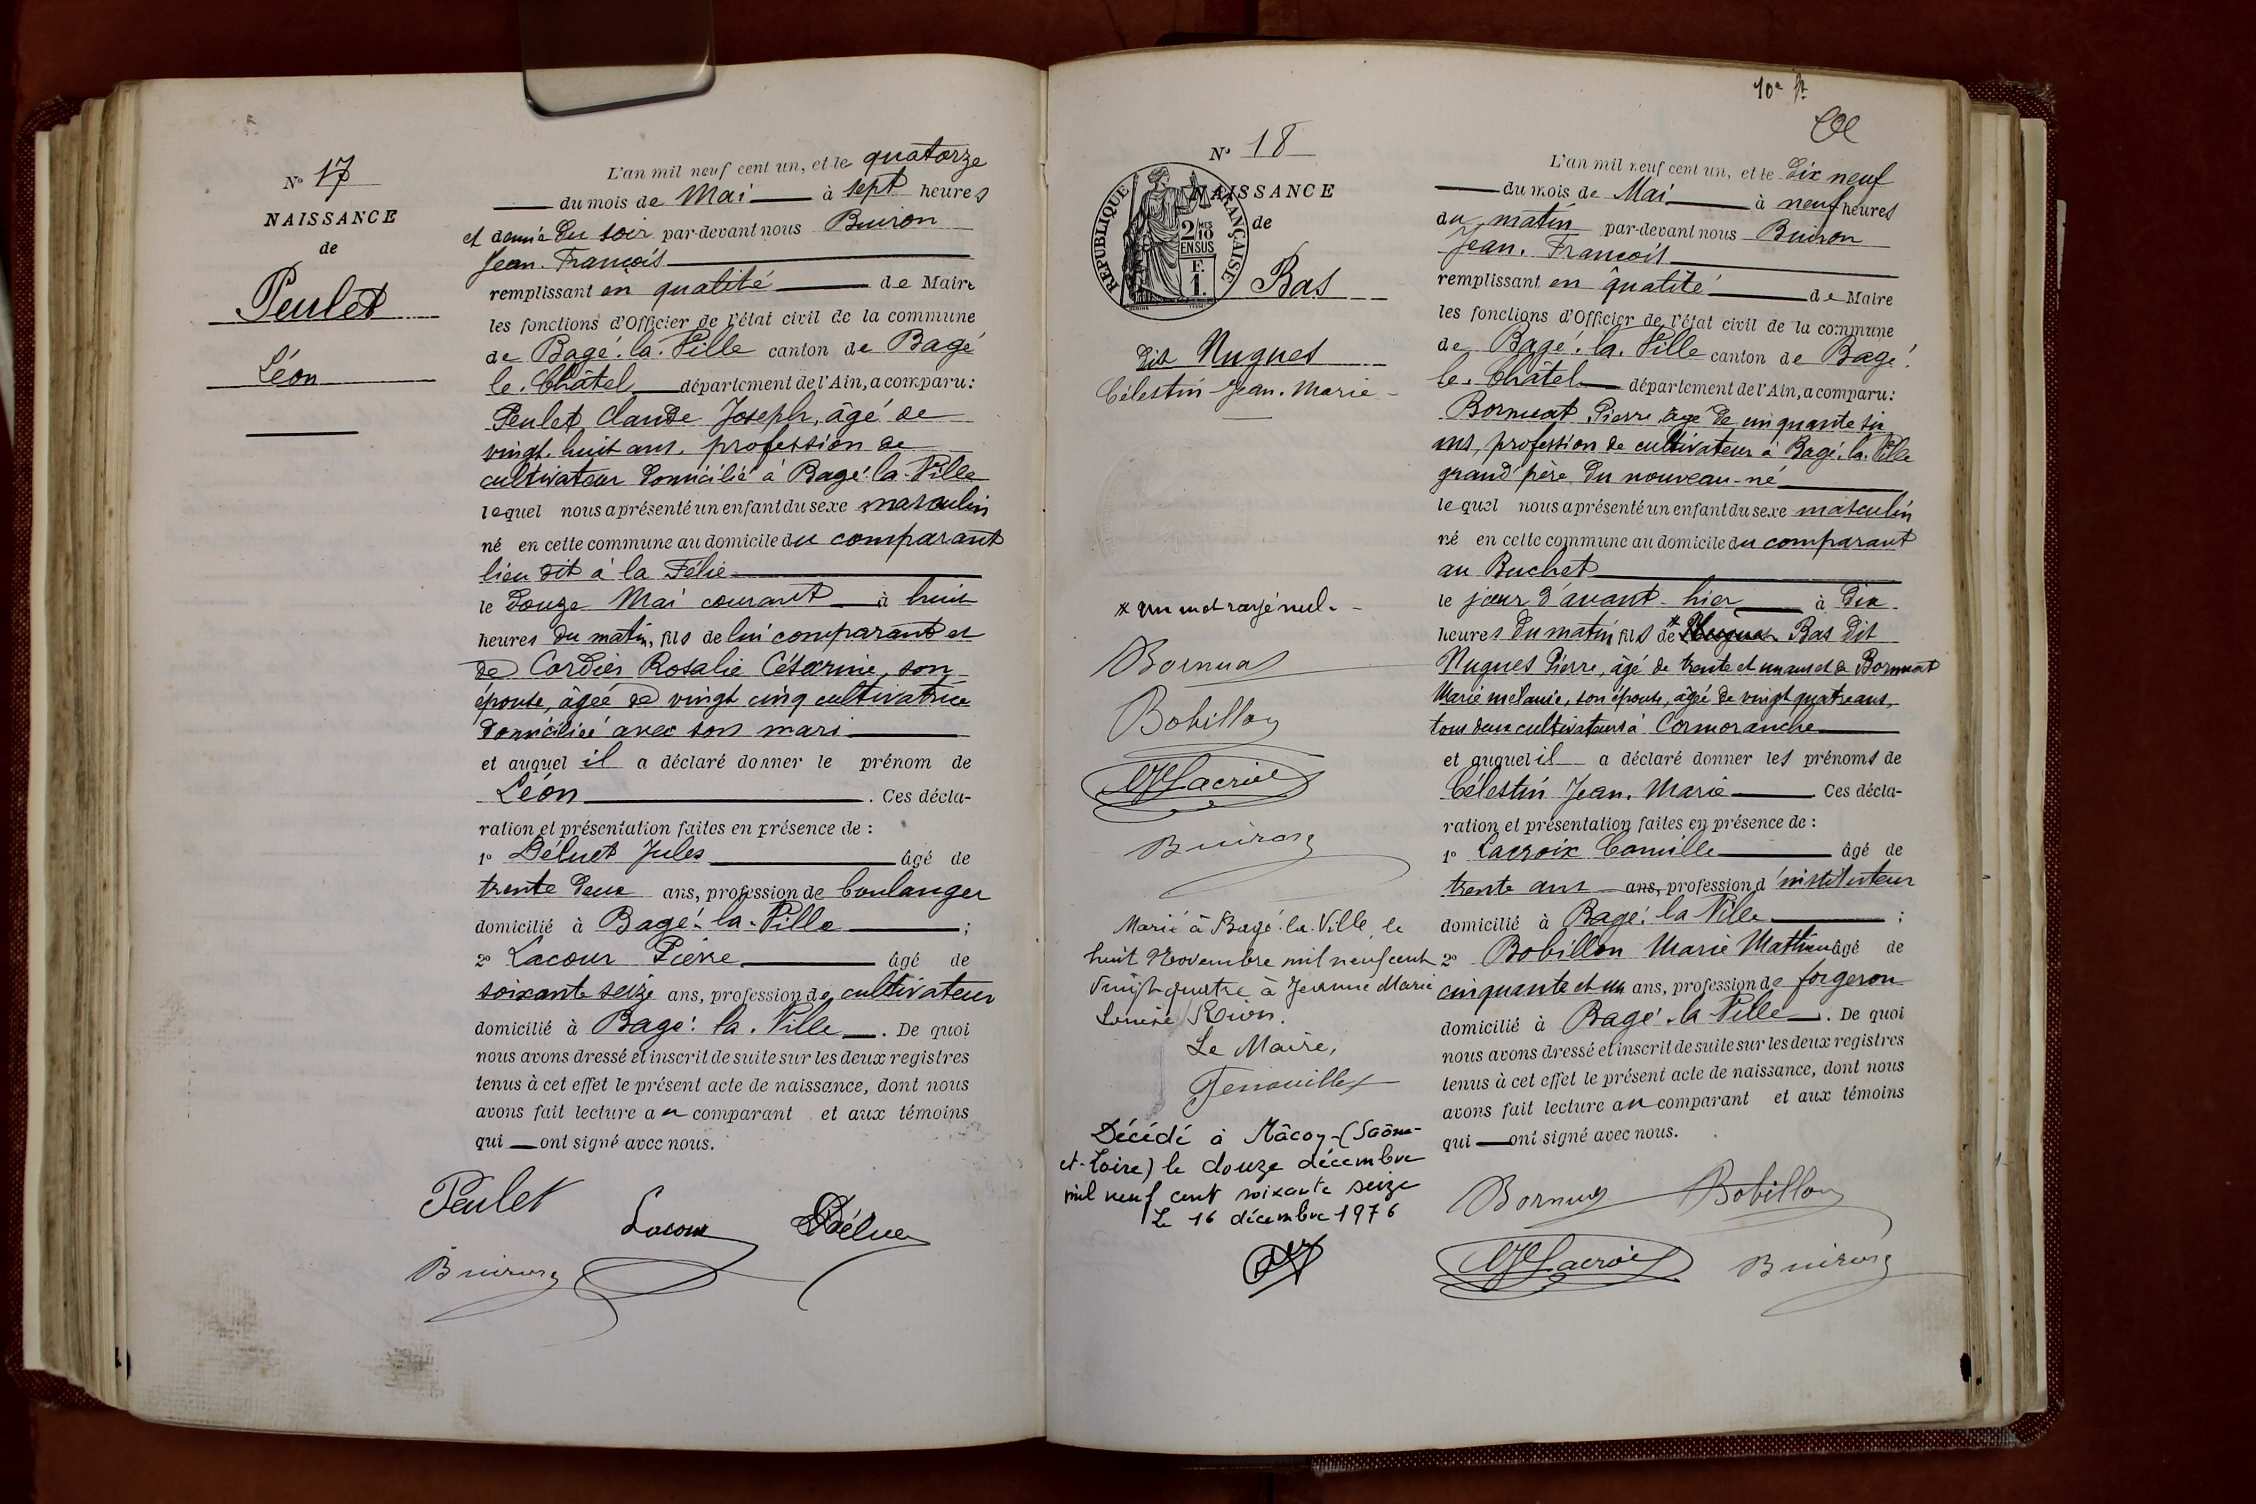 N° 17
NAISSANCE
de
Peulet
Léon
L'an mil neuf cent un, et le quatorze
du mois de Mai à sept heures
et demie du soir par-devant nous Buiron
Jean. François
remplissant en qualité de Maire
les fonctions d'Officier de l'état civil de la commune
de Bagé-la-Ville canton de Bagé
le-Châtel département de l'Ain, a comparu:
Peulet Claude Joseph, âgé de
vingt-huit ans, profession de
cultivateur domicilié à Bagé-la-Ville
lequel nous a présenté un enfant du sexe masculin
né en cette commune au domicile du comparant
lieu dit à la Félie
le douze Mai courant à huit
heures du matin, fils de lui comparant et
de Cordier Rosalie Césarine, son
épouse, âgée de vingt cinq cultivatrice
domiciliée avec son mari
et auquel il a déclaré donner le prénom de
Léon. Ces décla-
ration et présentation faites en présence de :
1° Déluet Jules âgé de
trente deux ans, profession de boulanger
domicilié à Bagé-la-Ville ;
2° Lacour Pierre âgé de
soixante seize ans, profession de cultivateur
domicilié à Bagé-la-Ville. De quoi
nous avons dressé et inscrit de suite sur les deux registres
tenus à cet effet le présent acte de naissance, dont nous
avons fait lecture au comparant et aux témoins
qui ont signé avec nous.
Peulet Lacour Délue
Buiron
10e
N° 18
NAISSANCE
de
RÉPUBLIQUE FRANÇAISE
2 MES
10
EN SUS
F.
1.
Bas
dit Nugues
Célestin-Jean-Marie
* un mot rayé nul.
Bornua
Bobillon
Lacroix
Buiron
Marié à Bagé-la-Ville, le
huit Novembre mil neuf cent
vingt quatre à Jeanne Marie
Louise Rion.
Le Maire,
Fenouillet
Décédé à Mâcon (Saône-
et-Loire) le douze décembre
mil neuf cent soixante seize
Le 16 décembre 1976
L'an mil neuf cent un, et le dix neuf
du mois de Mai à neuf heures
du matin par-devant nous Buiron
Jean. François
remplissant en qualité de Maire
les fonctions d'Officier de l'état civil de la commune
de Bagé-la-Ville canton de Bagé
le-Châtel département de l'Ain, a comparu:
Bornuat Pierre âgé de cinquante six
ans, profession de cultivateur à Bagé-la-Ville
grand père du nouveau-né
lequel nous a présenté un enfant du sexe masculin
né en cette commune au domicile du comparant
au Buchet
le jour d'avant-hier à dix
heures du matin fils de * Bas dit
Nugues Pierre, âgé de trente et un ans et de Bornuat
Marie mélanie, son épouse, âgée de vingt quatre ans,
tous deux cultivateurs à Cormoranche
et auquel il a déclaré donner les prénoms de
Célestin Jean. Marie Ces décla-
ration et présentation faites en présence de :
1° Lacroix Camille âgé de
trente ans ans, profession d'instituteur
domicilié à Bagé-la-Ville ;
2° Bobillon Marie Mathieu âgé de
cinquante et un ans, profession de forgeron
domicilié à Bagé-la-Ville. De quoi
nous avons dressé et inscrit de suite sur les deux registres
tenus à cet effet le présent acte de naissance, dont nous
avons fait lecture au comparant et aux témoins
qui ont signé avec nous.
Bornua Bobillon
Lacroix Buiron